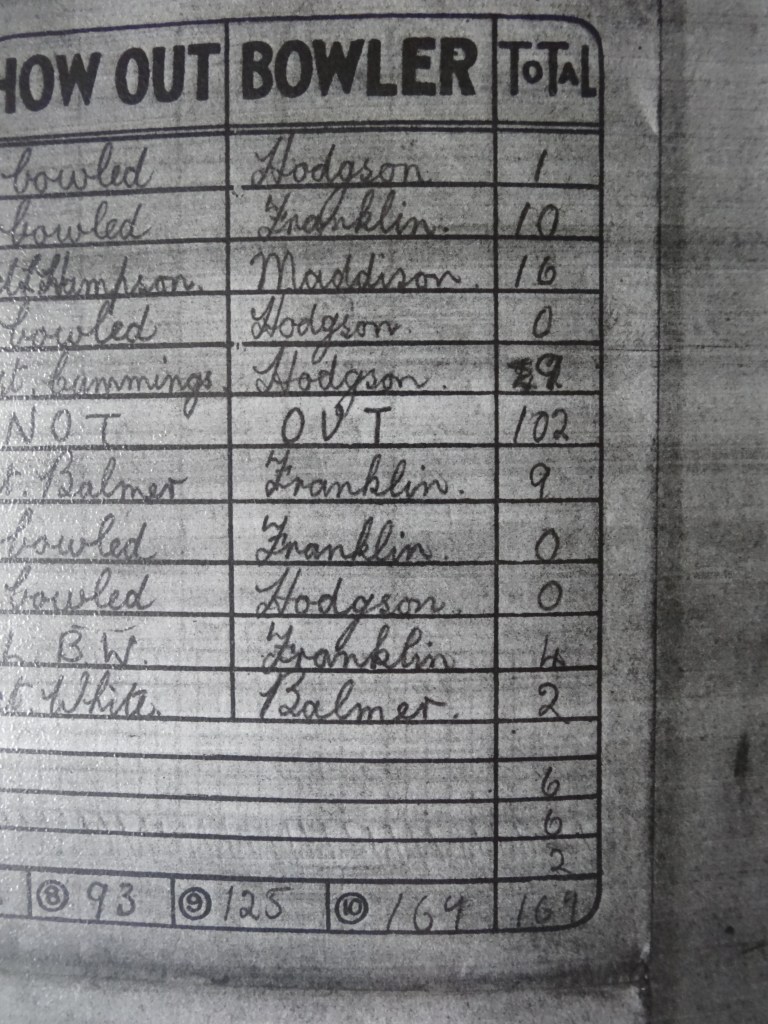 HOW OUT BOWLER TOTAL
bowled Hodgson 1
bowled Franklin. 10
Hampson. Maddison 16
bowled Hodgson 0
t. Cummings. Hodgson. 9
NOT OUT 102
t. Balmer Franklin. 9
bowled Franklin 0
bowled Hodgson. 0
L.B.W. Franklin 4
t. White. Balmer. 2
6
6
2
⑧ 93 ⑨ 125 ⑩ 169 169